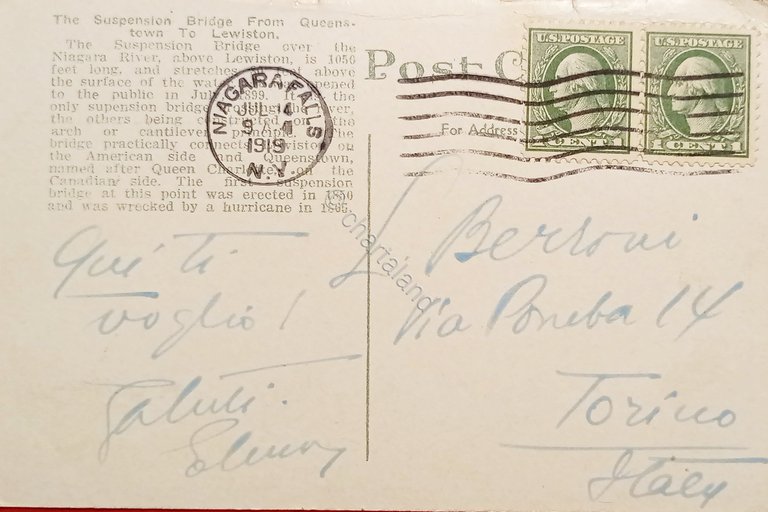 The Suspension Bridge From Queens-
town To Lewiston.
The Suspension Bridge over the
Niagara River, above Lewiston, is 1050
feet long, and stretches above
the surface of the opened
to the public in 1899. the
only supension bridge
the others being on the
arch or cantilever principle. The
bridge practically connects Lewiston on
the American side and Queenstown,
named after Queen on the
Canadian side. The first suspension
bridge at this point was erected in 1856
and was wrecked by a hurricane in 1865.
NIAGARA FALLS
JUL 14
9
1919
N.Y
Post C
For Address
U.S. POSTAGE
1 CENT 1
U.S. POSTAGE
1 CENT 1
© chartaland
Qui ti
voglio!
Saluti.
L. Berroni
Via 14
Torino
Italy